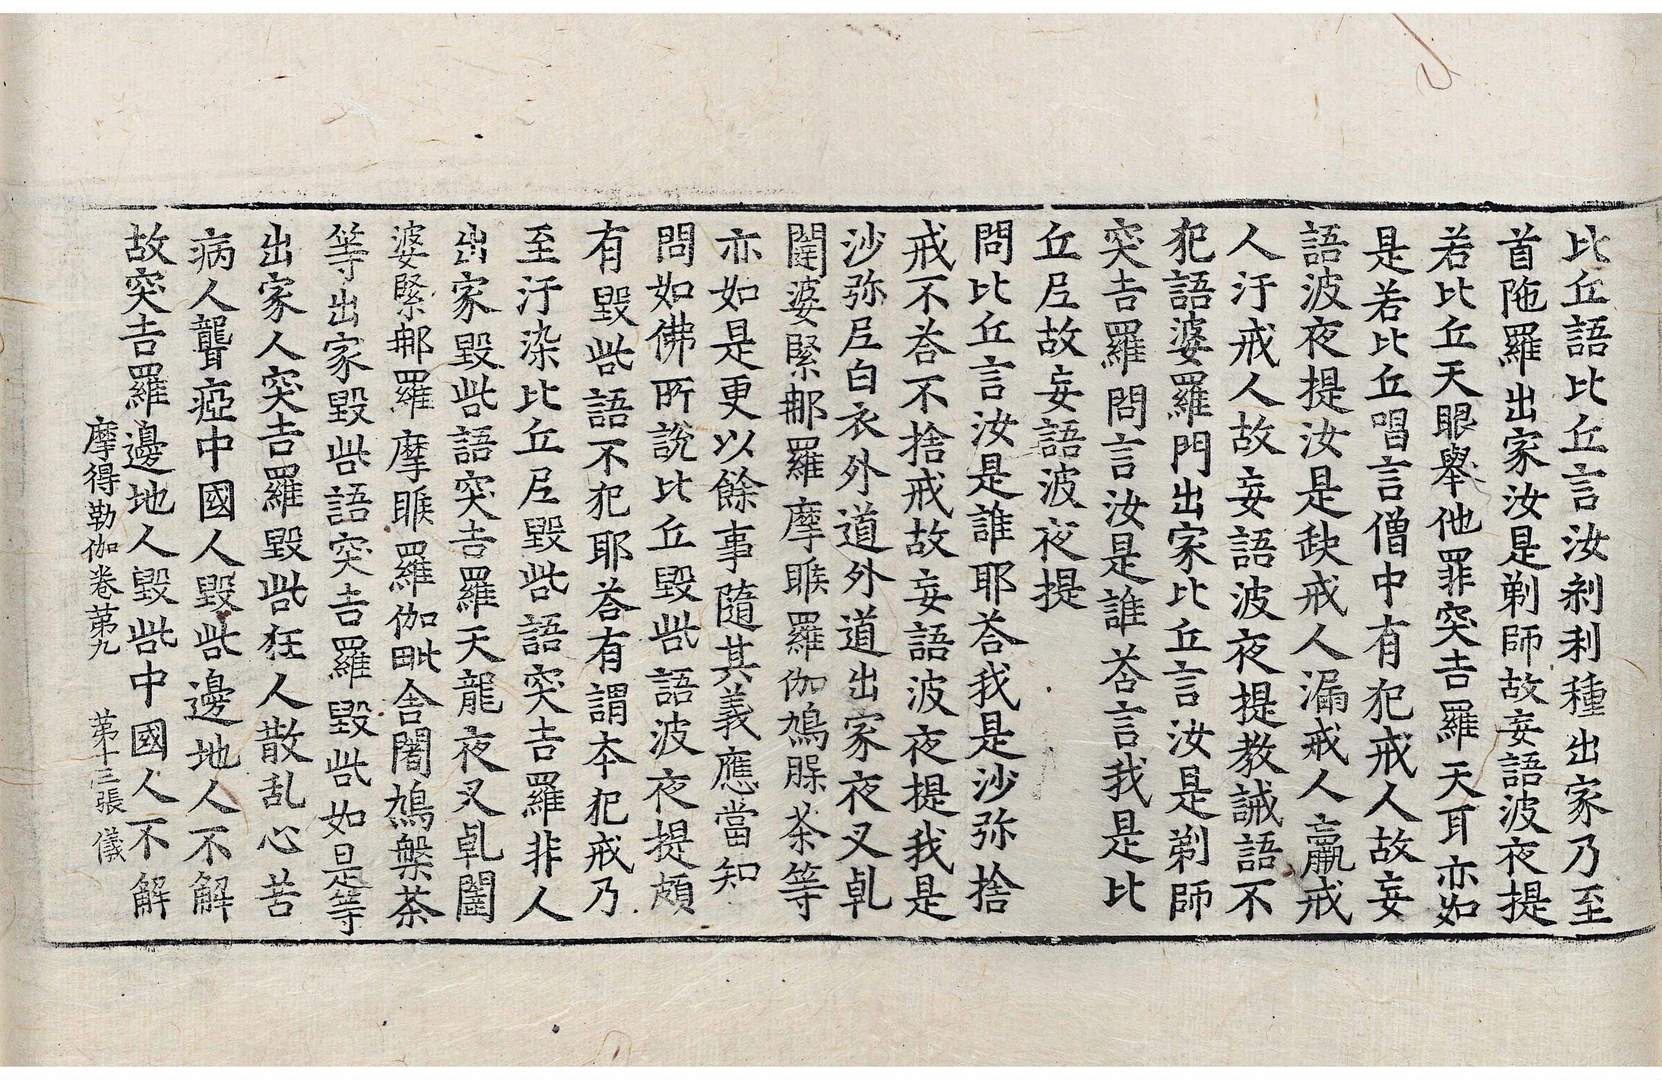 比丘語比丘言汝刹利種出家乃至
首陁羅出家汝是剃師故妄語波夜提
若比丘天眼舉他罪突吉羅天耳亦如
是若比丘唱言僧中有犯戒人故妄
語波夜提汝是缺戒人漏戒人羸戒
人汙戒人故妄語波夜提教誡語不
犯語婆羅門出家比丘言汝是剃師
突吉羅問言汝是誰荅言我是比
丘尼故妄語波夜提
問比丘言汝是誰耶荅我是沙弥捨
戒不荅不捨戒故妄語波夜提我是
沙弥尼白衣外道外道出家夜叉乹
闥婆緊那羅摩睺羅伽鳩腺茶等
亦如是更以餘事隨其義應當知
問如佛所說比丘毀呰語波夜提頗
有毀呰語不犯耶荅有謂本犯戒乃
至汙染比丘尼毀呰語突吉羅非人
出家毀呰語突吉羅天龍夜叉乹闥
婆緊那羅摩睺羅伽毗舍闍鳩槃茶
等出家毀呰語突吉羅毀呰如是等
出家人突吉羅毀呰狂人散乱心苦
病人聾瘂中國人毀呰邊地人不解
故突吉羅邊地人毀呰中國人不解
摩得勒伽卷第九 第十三張 儀